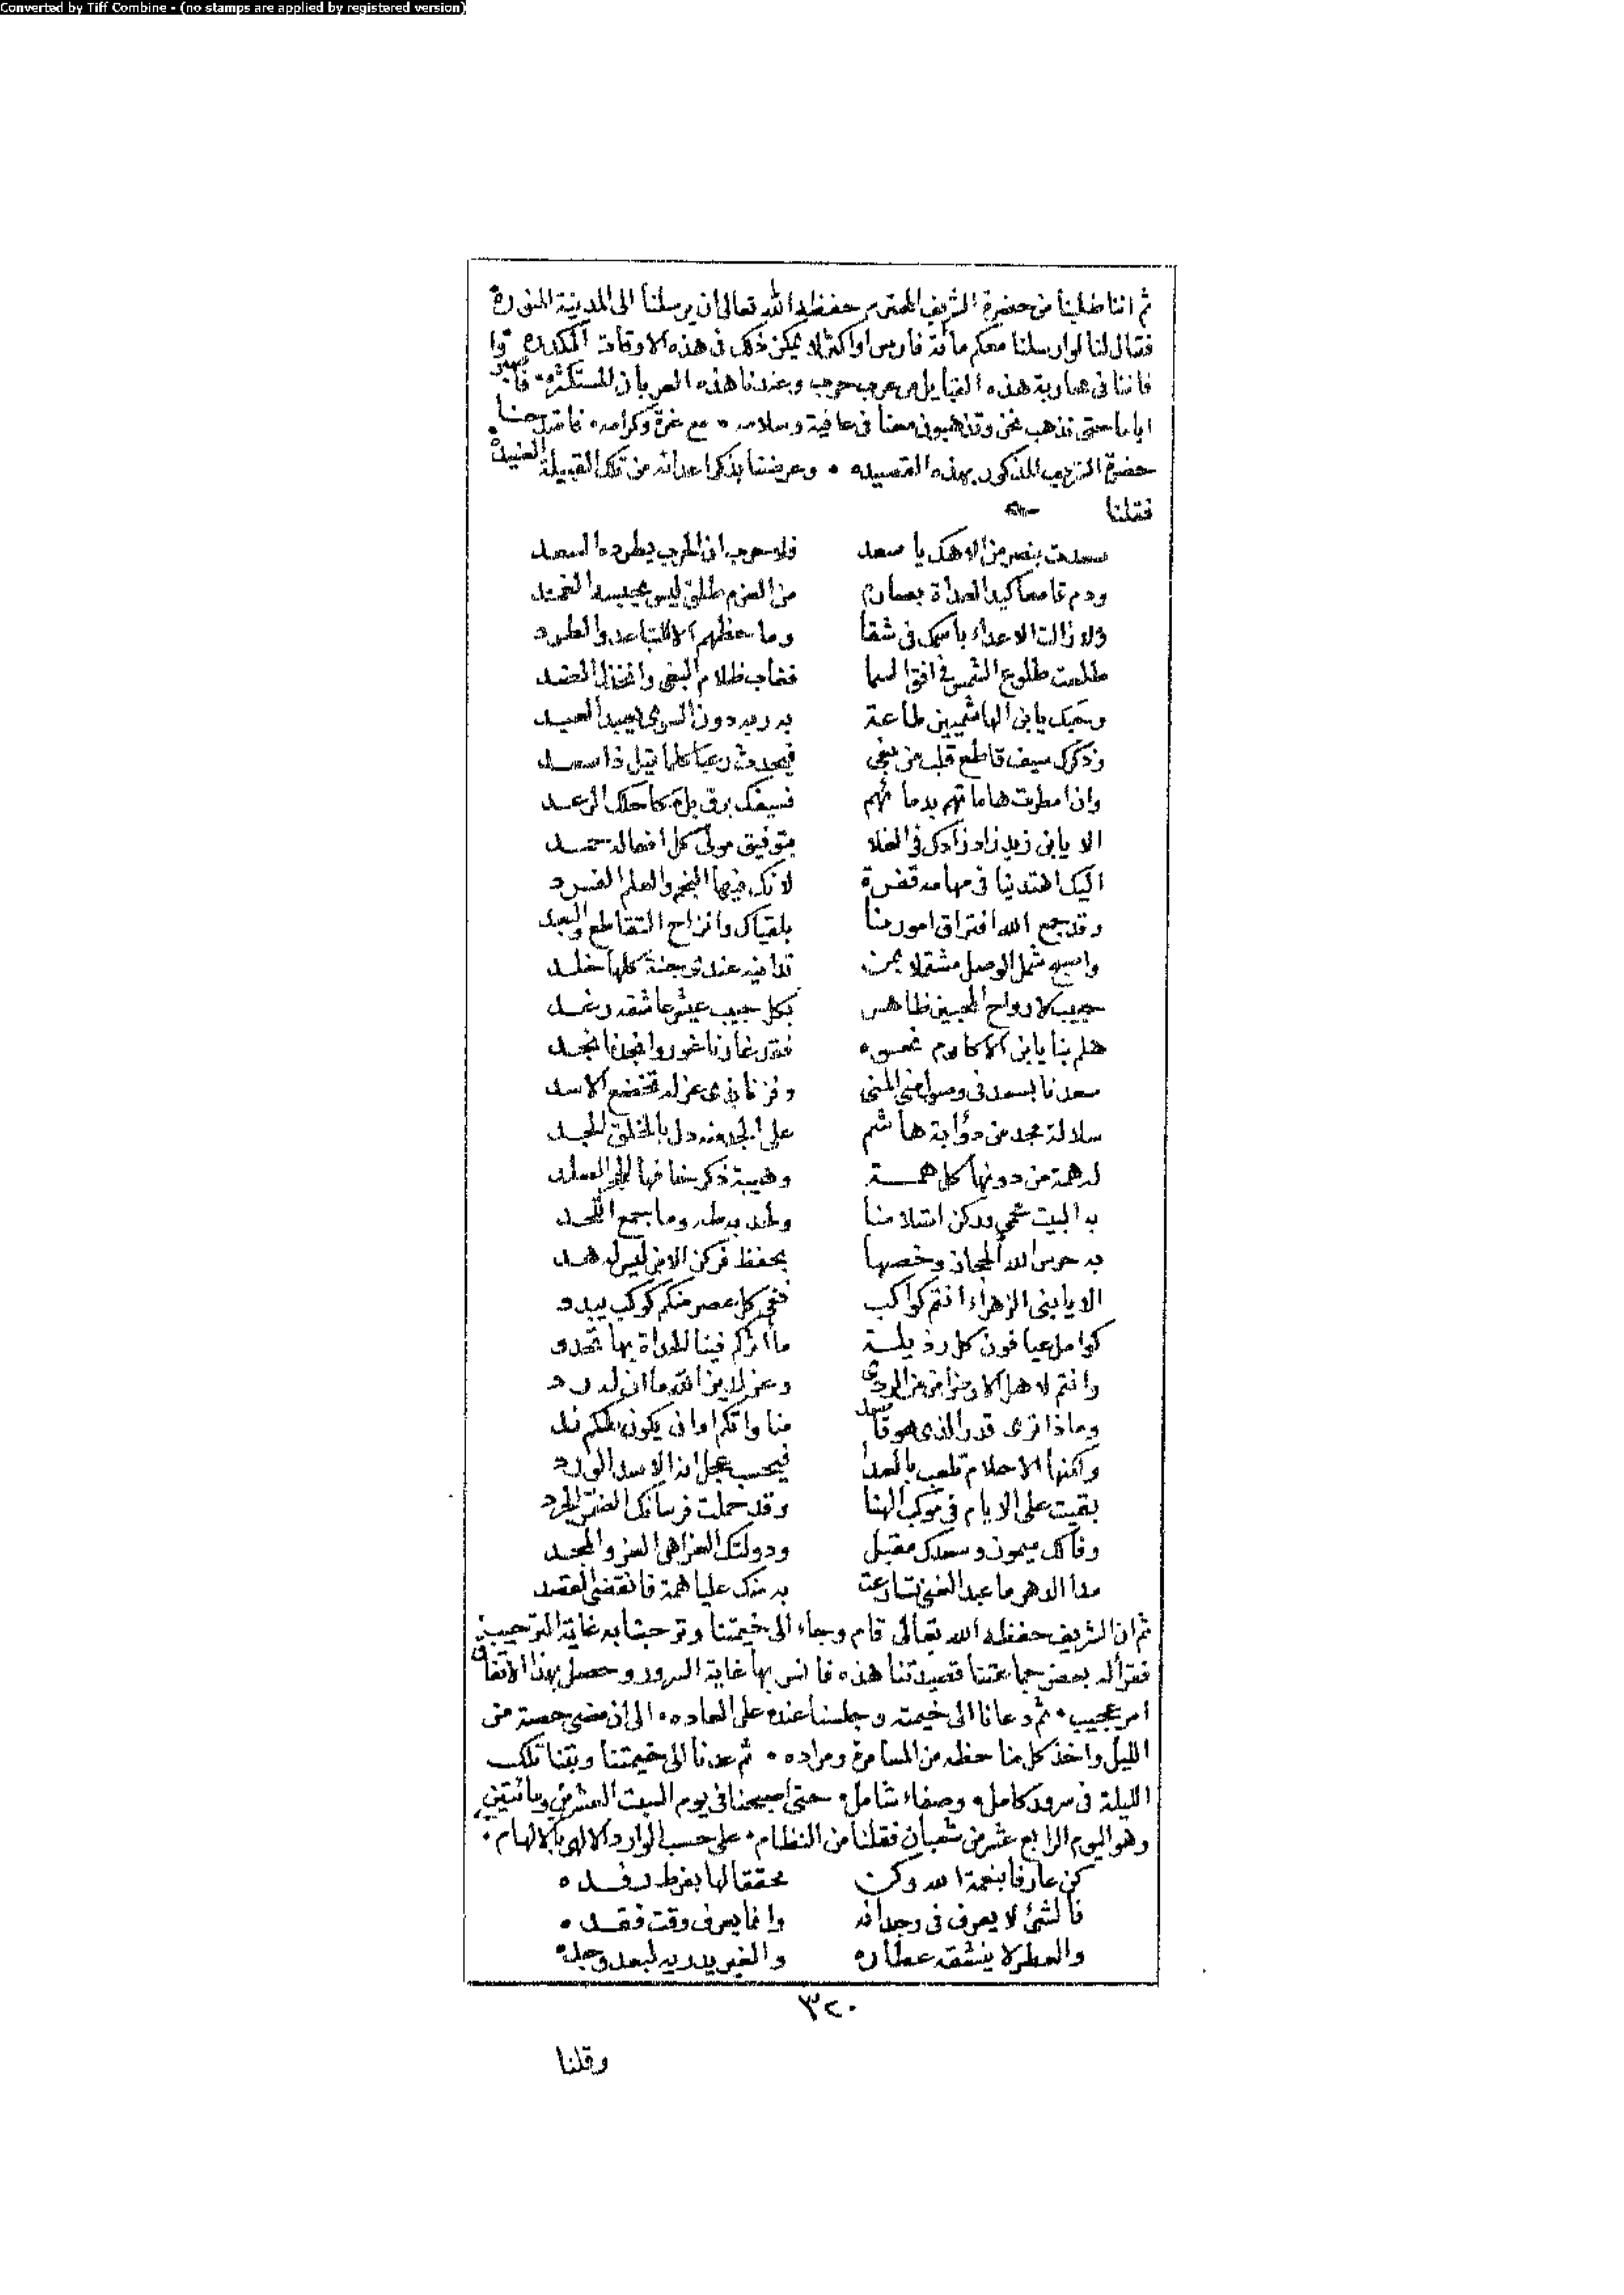 Converted by Tiff Combine - (no stamps are applied by registered version)
ثم اننا طلبنا من حضرة الشريف المحترم حفظه الله تعالى ان يرسلنا الى المدينة المنورة
فقال لنا لو ارسلنا معكم مائة فارس او اكثر لا يمكن ذلك في هذه الاوقات المكدره
فاننا في محاربة هذه القبايل من عرب حرب وعندنا هذه العربان المستكثره فاصبروا
اياما حتى نذهب نحن وتذهبون معنا في عافية وسلامه • مع عزة وكرامه • فامتدحنا
حضرة الشريف المذكور بهذه القصيده • وعرضنا بذكر اعدائه من تلك القبيلة العنيدة
فقلنا
سعدت بنصر من الاهك يا سعد فلا حرب ان الحرب يطرده السعد
ودم قامعا كيد العداة بصارم من العزم طلق ليس يحبسه الغمد
ولا زالت الاعداء باسمك في شقا وما حظهم الا التباعد والطرد
طلعت طلوع الشمس في افق السما فغاب ظلام البغي وانخذل الضد
وحبك يا ابن الهاشميين طاعة
وذكرك سيف قاطع قلب من بغى فيحدث رعبا كلما قيل ذا سعد
وان امطرت هاماتهم بدمائهم فسيفك برق بل كاحلك الرعد
الا يا ابن زيد زاد زادك في العلا بتوفيق مولى كل افعاله حمد
اليك اهتدينا في مهامه قفرة لانك فيها النجم والعلم الفرد
وقد جمع الله افتراق امورنا بلقياك وانزاح التقاطع والبعد
واصبح شمل الوصل مشتملا بمن تدانيه عندي جنة كلها خلد
حبيب لارواح المحبين ظاهر بكل حبيب عيش عاشقه رغد
هلم بنا يا ابن الاكارم نحوه فقد غارنا غور وانجدنا نجد
سعدنا بسعد في وصول منى المنى وفزنا بذي عز له تخضع الاسد
سلالة مجد من ذؤابة هاشم على المجد منه دل بالخلق المجد
له همة من دونها كل همة وهيبة ذكر خافها الحجر الصلد
به البيت محمي وركن استلامنا
به حرس الله الحجاز وخصها بحفظ فركن الامن ليس له هد
الا يا بني الزهراء انتم كواكب ففي كل عصر منكم كوكب يبدو
كوامل عيافون كل رذيلة مآثركم فينا الحداة بها تحدو
وانتم لاهل الارض امن من الردى وعز لدين الله ما ان له رد
وماذا ترى قدر الذي هو قاصد مناواتكم او ان يكون لكم ند
ولكنها الاحلام تلعب بالعدا فيحسب عجل انه الاسد الورد
بقيت على الايام في موكب الهنا وقد حملت فرسانك الضمر الجرد
وفالك ميمون وسعدك مقبل ودولتك الغرا هي العز والمجد
مدا الدهر ما عبد الغني تسارعت به منك عليا همة فانقضى القصد
ثم ان الشريف حفظه الله تعالى قام وجاء الى خيمتنا وترحبنا به غاية الترحيب
فقرأ له بعض جماعتنا قصيدتنا هذه فانسر بها غاية السرور وحصل بهذا الاتفاق
امر عجيب • ثم دعانا الى خيمته وجلسنا عنده على العاده • الى ان مضى حصة من
الليل واخذ كل منا حظه من المسامرة ومراده • ثم عدنا الى خيمتنا وبتنا تلك
الليلة في سرور كامل • وصفاء شامل • حتى اصبحنا في يوم السبت العشرين ومائتين
وهو اليوم الرابع عشر من شعبان فقلنا من النظام • على حسب الوارد الالهي بالالهام •
كن عارفا بنعمة الله وكن محققا لها بفرط رفده
فالشئ لا يعرف في وجدانه وانما يعرف وقت فقده
والعطر لا ينشقه عطاره والغير يدريه لبعد وجده
٣٢٠
وقلنا